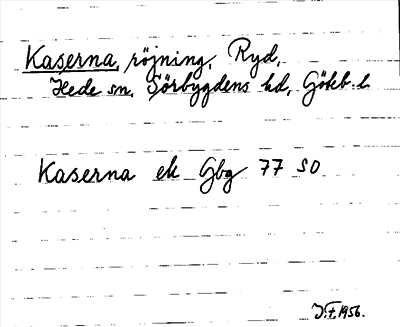 Kaserna, röjning, Ryd,
Hede sn, Sörbygdens hd, Göteb. l.
Kaserna ek Gbg 77 SO
J.F. 1956.